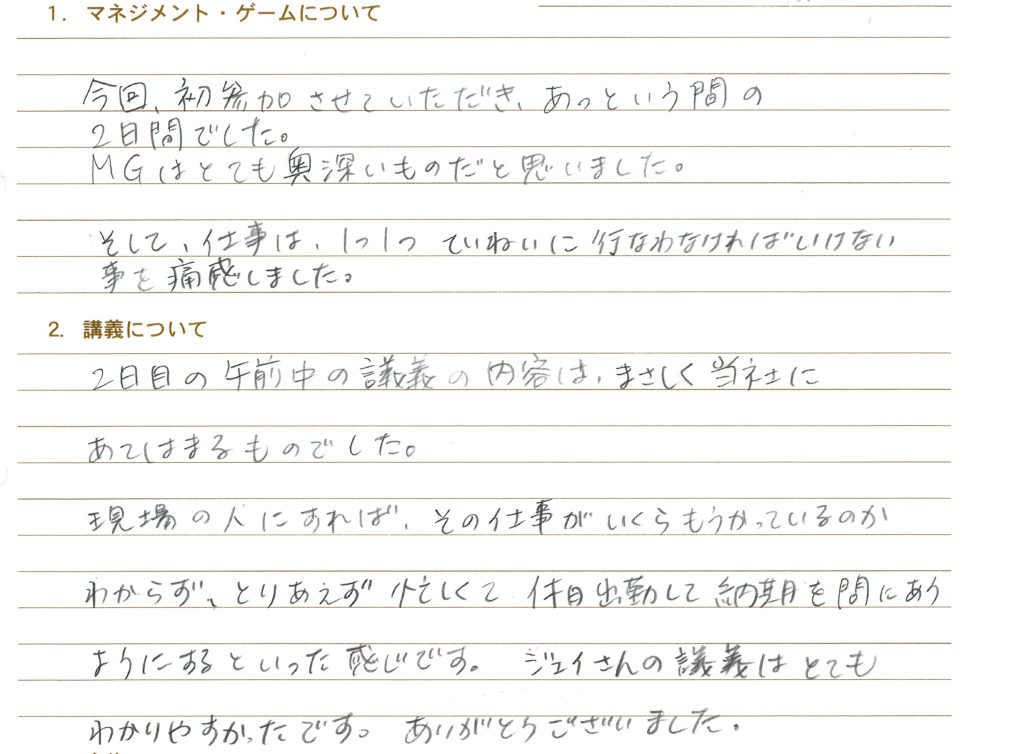 1. マネジメント・ゲームについて
今回、初参加させていただき、あっという間の
2日間でした。
MGはとても奥深いものだと思いました。
そして、仕事は、1つ1つ ていねいに行なわなければいけない
事を痛感しました。
2. 講義について
2日目の午前中の議義の内容は、まさしく当社に
あてはまるものでした。
現場の人にすれば、その仕事がいくらもうかっているのか
わからず、とりあえず忙しくて 休日出勤して納期を間にあう
ようにするといった感じです。 ジェイさんの議義はとても
わかりやすかったです。ありがとうございました。